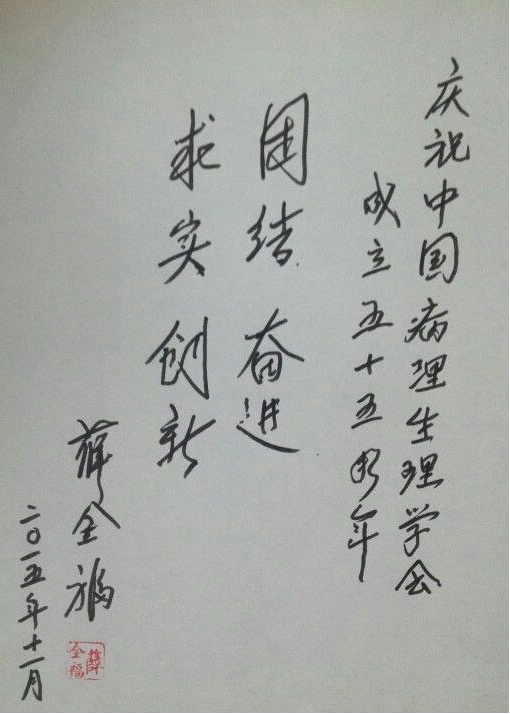 庆祝中国病理生理学会
成立五十五周年
团结 奋进
求实 创新
薛全福
二〇一五年十一月
薛全福